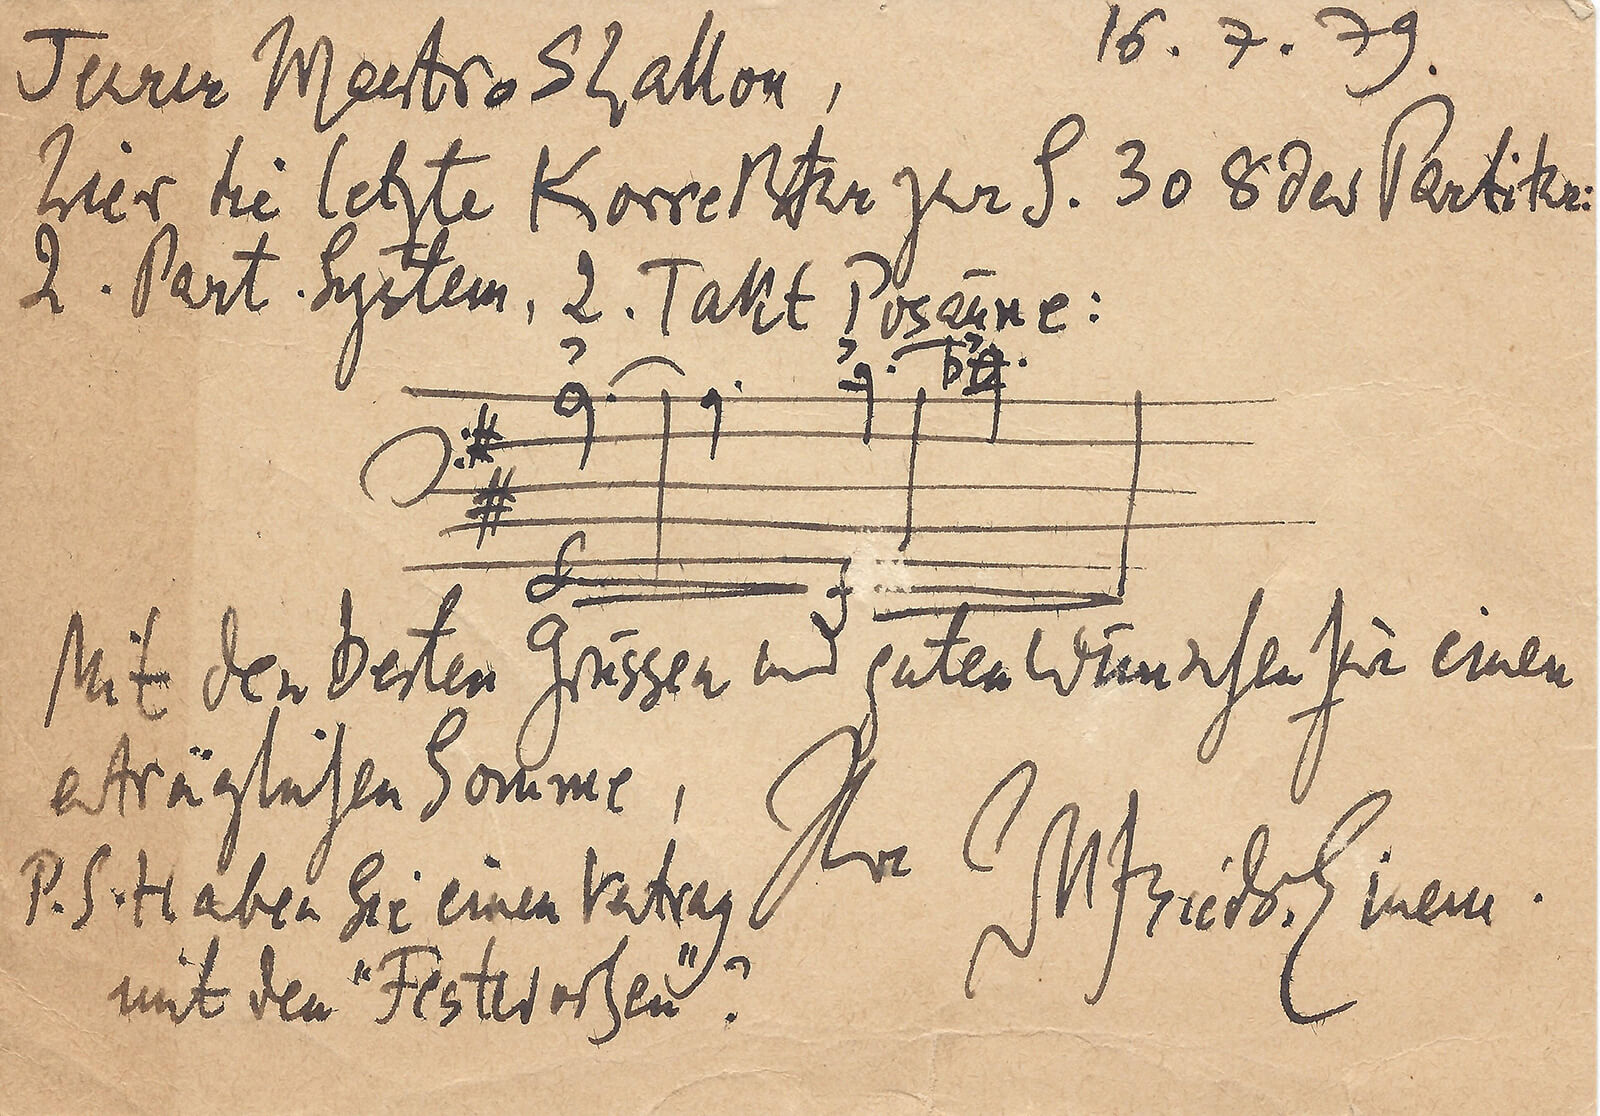 16. 7. 79.
Teurer Maestro Shallon,
hier die letzte Korrektur zur S. 308 der Partitur:
2. Part. System, 2. Takt Posaune:
f
Mit den besten Grüssen und guten Wünschen für einen
erträglichen Sommer,
Ihr Gottfried v. Einem.
P.S. Haben Sie einen Vertrag
mit den "Festwochen"?